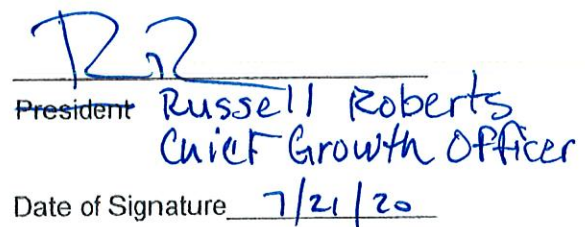 RR
President Russell Roberts
Chief Growth Officer
Date of Signature 7/21/20